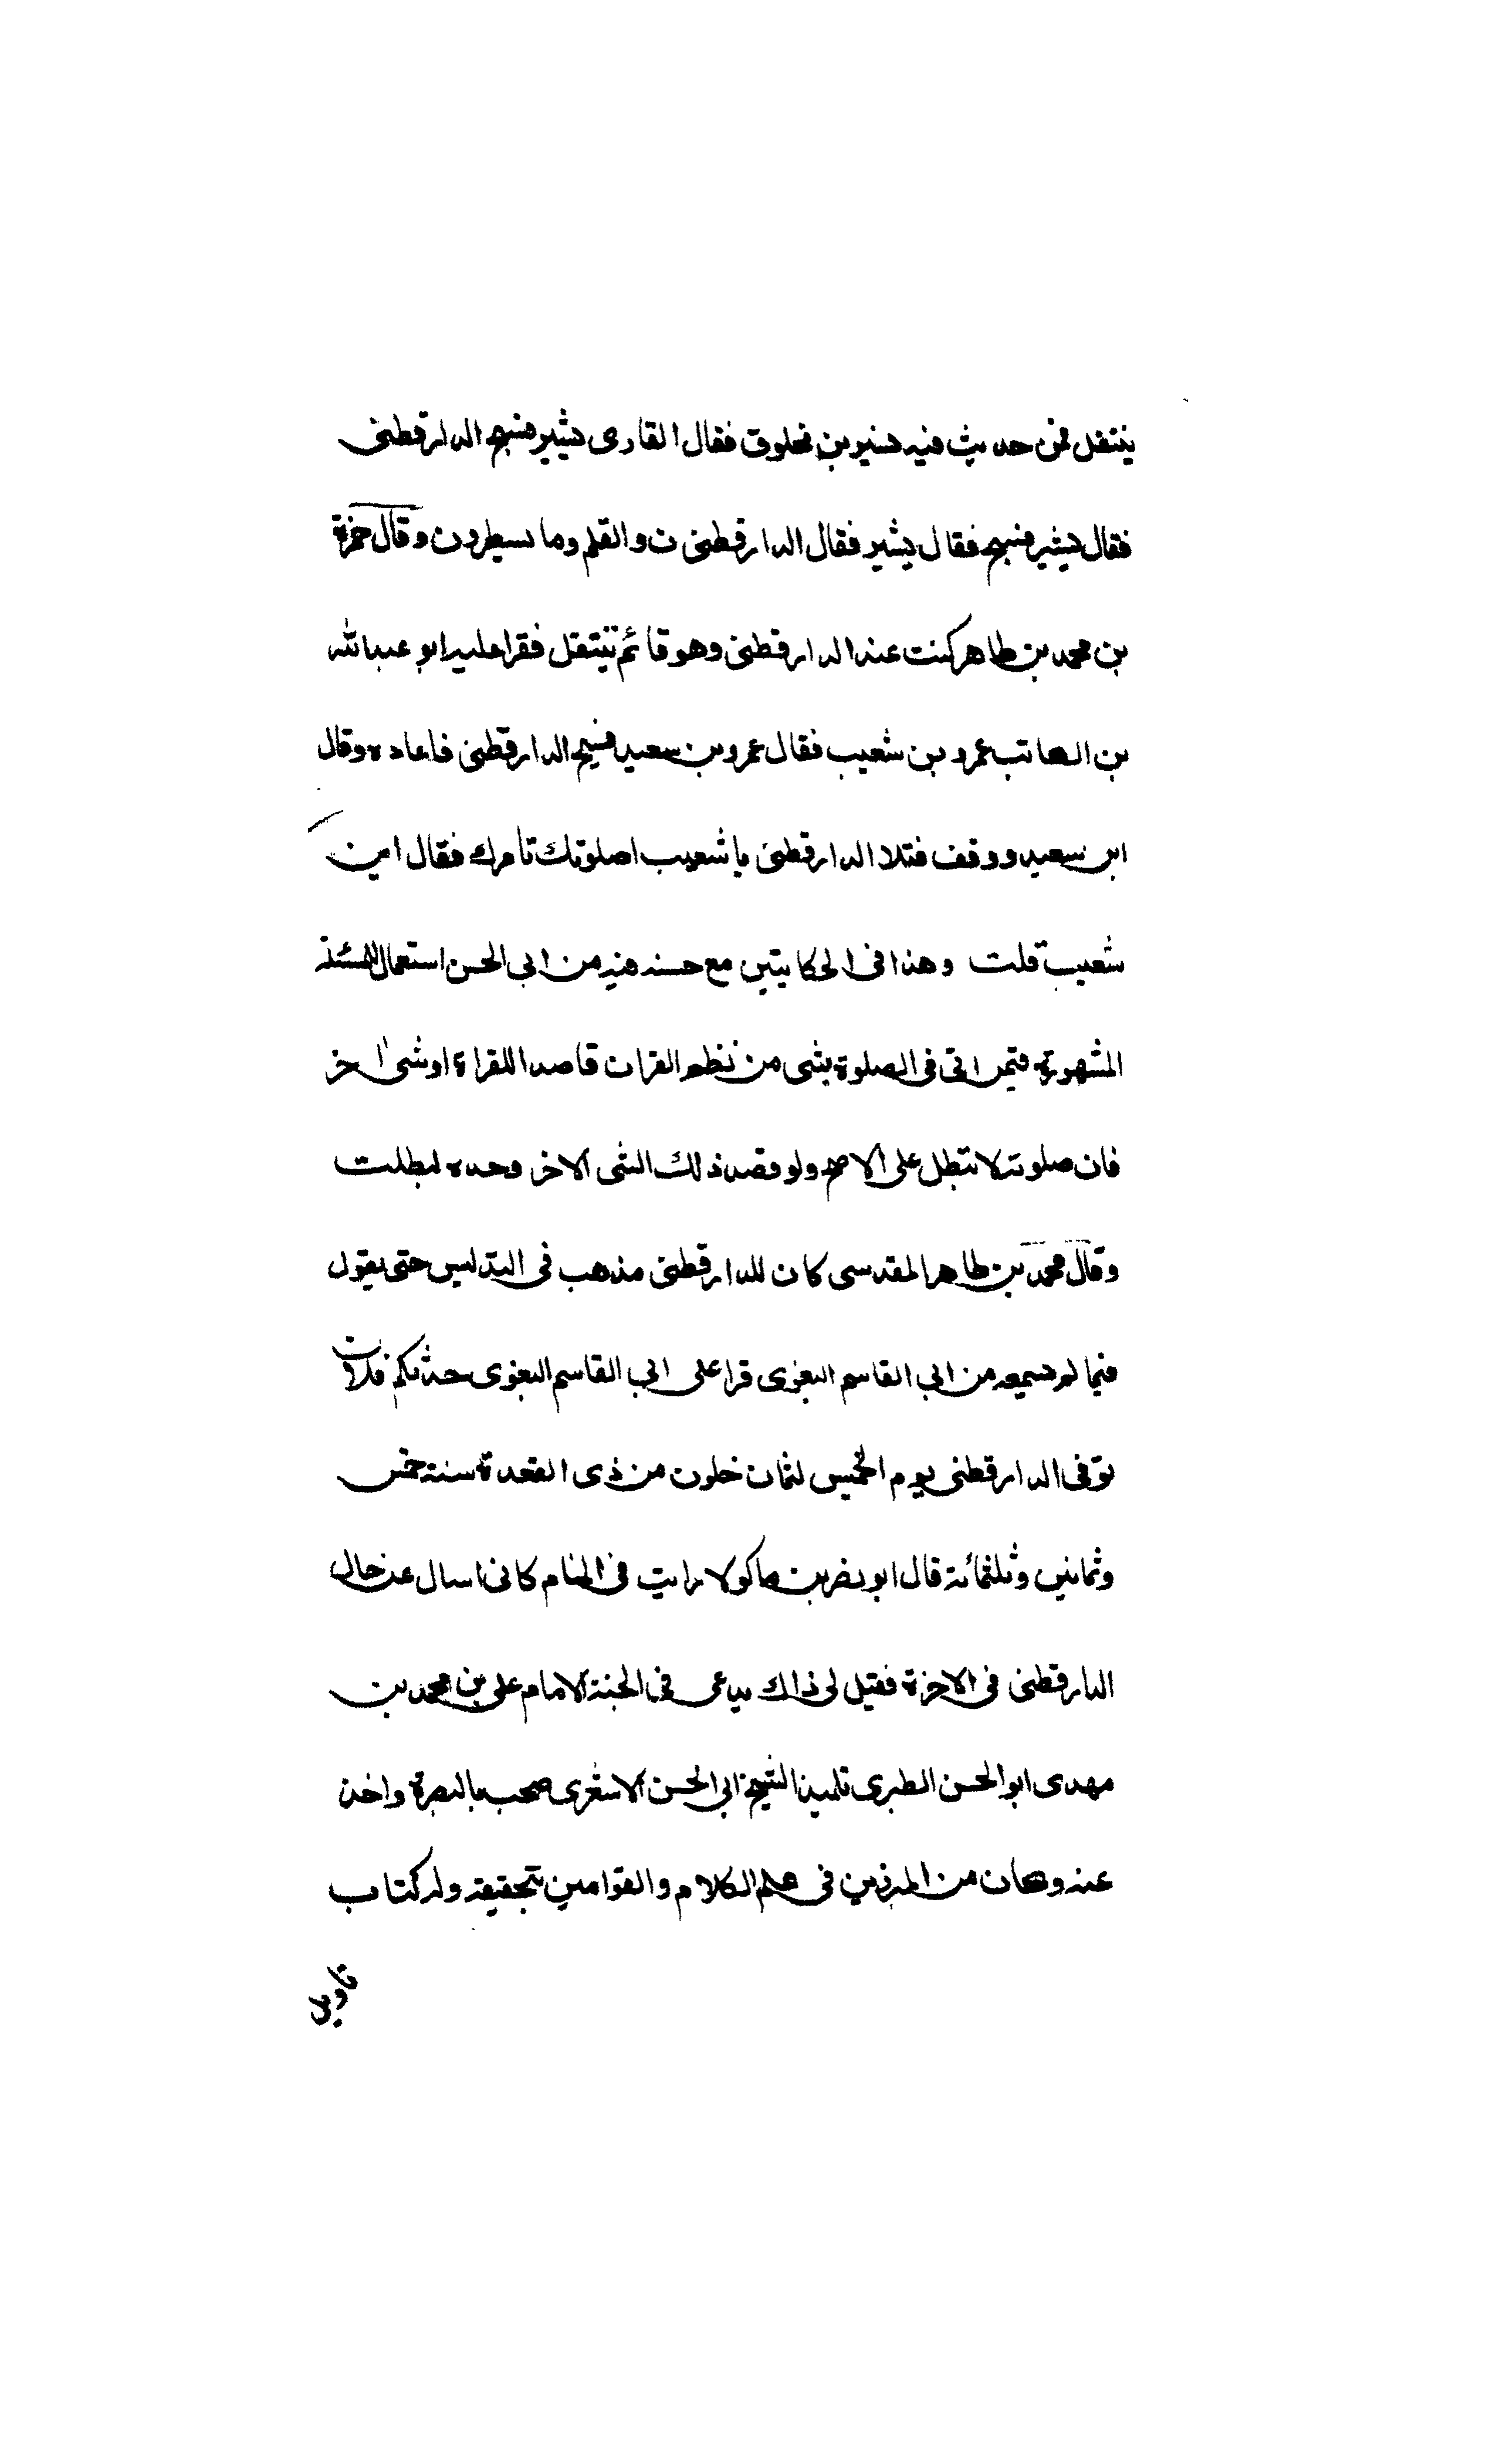 يتنفل فمن حديث فيه نسير بن ذعلوق فقال القارى بشير فسبح الدارقطنى
فقال بشير فسبح فقال يشير فقال الدارقطنى ن والقلم وما يسطرون وقال حمزة
بن محمد بن طاهر كنت عند الدارقطنى وهو قائم يتنفل فقرا عليه ابو عبدالله
بن الكاتب عمرو بن شعيب فقال عمرو بن سعيد فسبح الدارقطنى فاعاده وقال
ابن سعيد ووقف فتلا الدارقطنى يا شعيب اصلوتك تامرك فقال ابن
شعيب قلت وهذا فى الحكايتين مع حسنه فيه من ابى الحسن استعمال للمسئلة
المشهورة فيمن اتى فى الصلوة بشى من نظم القران قاصدا للقراة او شى اخر
فان صلوته لا تبطل على الاصح ولو قصد ذلك الشى الاخر وحده لبطلت
وقال محمد بن طاهر المقدسى كان للدارقطنى مذهب فى التدليس حتى يقول
فيما لم يسمعه من ابى القاسم البغوى قرا على ابى القاسم البغوى حدثكم فلان
توفى الدارقطنى يوم الخميس لثمان خلون من ذى القعدة سنة خمس
وثمانين وثلثمائة قال ابو نصر بن ماكولا رايت فى المنام كانى اسال عن حال
الدارقطنى فى الاخرة فقيل لى ذاك يدعى فى الجنة الامام على بن محمد بن
مهدى ابو الحسن الطبرى تلميذ الشيخ ابى الحسن الاشعرى صحب بالبصرة واخذ
عنه وكان من المبرزين فى علم الكلام والقوامين بتحقيقه وله كتاب
تاويل